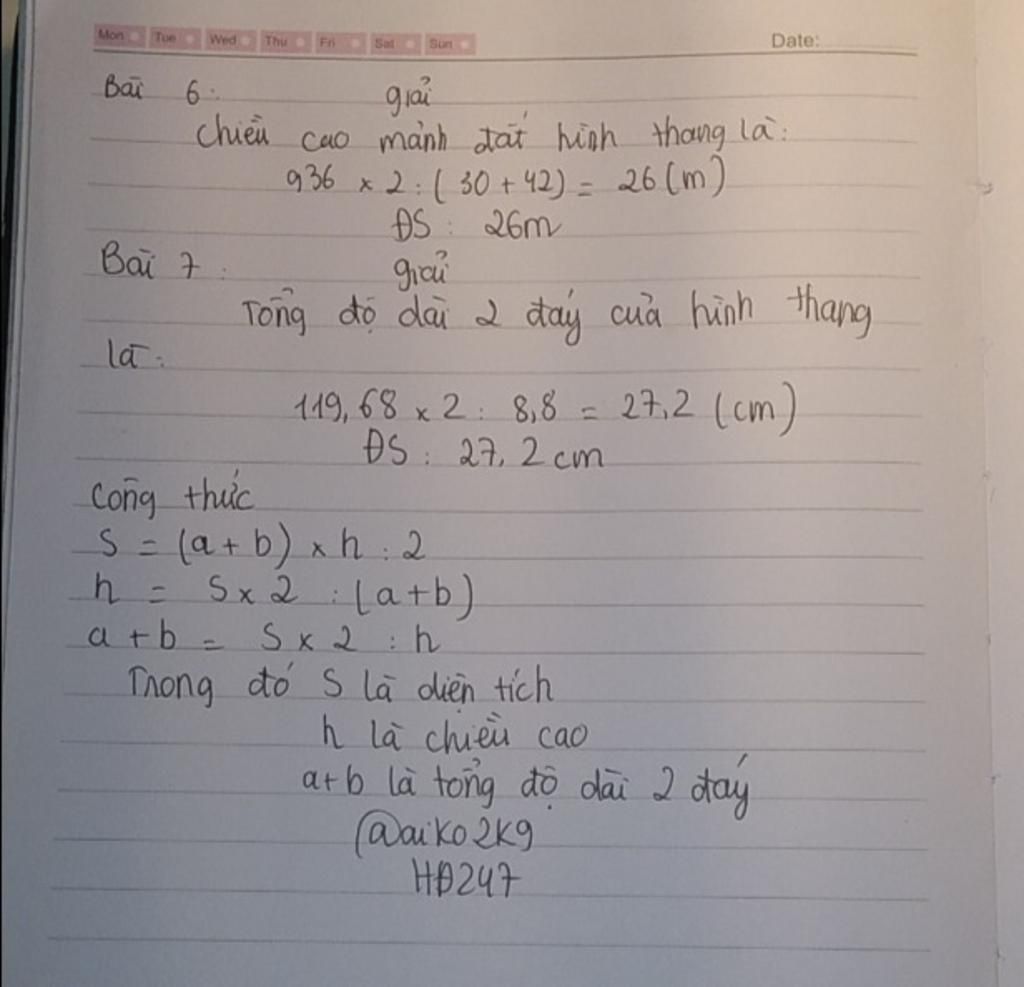 Mon Tue Wed Thu Fri Sat Sun Date:
Bài 6: giải
Chiều cao mảnh đất hình thang là:
936 x 2 : ( 30 + 42) = 26 (m)
ĐS : 26m
Bài 7 : giải
Tổng độ dài 2 đáy của hình thang
là:
119,68 x 2 : 8,8 = 27,2 (cm)
ĐS : 27,2 cm
Công thức
S = (a + b) x h : 2
h = S x 2 : (a+b)
a + b = S x 2 : h
Trong đó S là diện tích
h là chiều cao
a+b là tổng độ dài 2 đáy
@aiko2k9
HĐ247